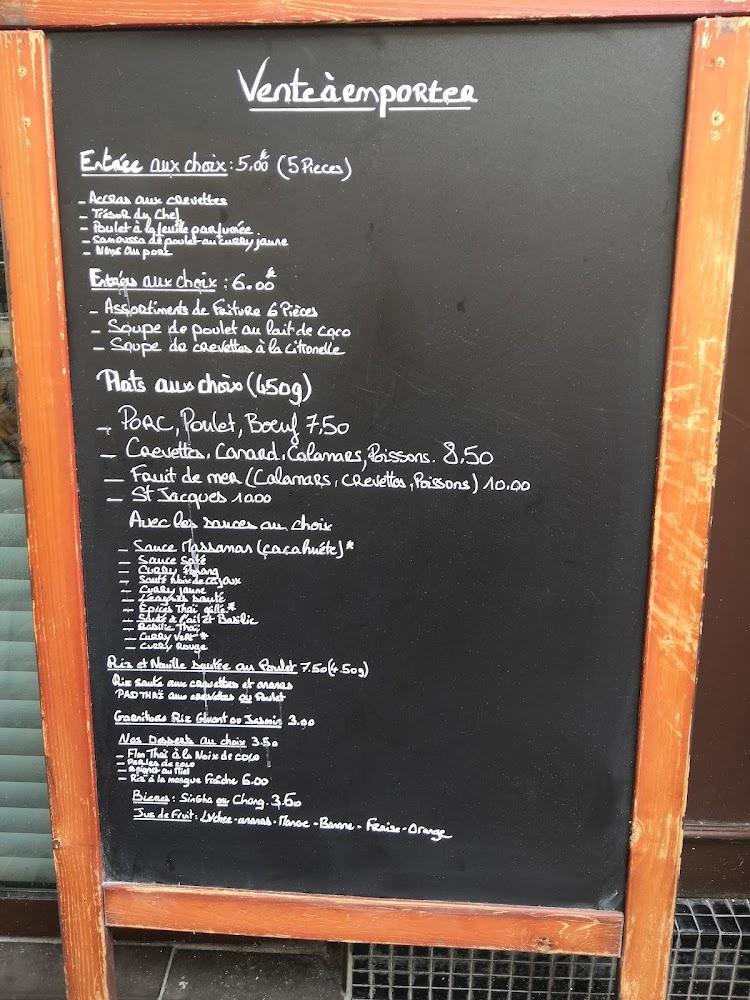 Vente à emporter
Entrée aux choix : 5.00€ (5 Pieces)
- Accras aux crevettes
- Trésor du Chef
- Poulet à la feuille parfumée
- Samoussa de poulet au curry jaune
- Nems au porc
Entrées aux choix : 6.00€
- Assortiments de Friture 6 Pièces
- Soupe de poulet au lait de coco
- Soupe de crevettes à la Citronelle
Plats aux choix (450g)
- Porc, Poulet, Boeuf 7,50
- Crevettes, Canard, Calamars, Poissons. 8,50
- Fruit de mer (Calamars, crevettes, Poissons) 10.00
- St Jacques 10.00
Avec les sauces au choix
- Sauce Massaman (cacahuéte)*
- Sauce Saté
- Curry Panang
- Sauté Noix de cajoux
- Curry jaune
- Légumes sauté
- Épices Thaï grillé*
- Sauté à l'ail et Basilic
- Basilic Thaï
- Curry Vert*
- Curry Rouge
Riz et Nouille sautée au Poulet 7.50 (450g)
Riz sauté aux crevettes et ananas
PAD THAÏ aux crevettes ou Poulet
Garnitures Riz Gluant ou Jasmin 3.00
Nos Desserts au choix 3.50
- Flan Thaï à la Noix de coco
- Perles de coco
- Beignet au Miel
- Riz à la mangue fraîche 6.00
Bieres : Singha ou Chang. 3.50
Jus de Fruit : Lychee - ananas - Mangue - Banane - Fraise - Orange